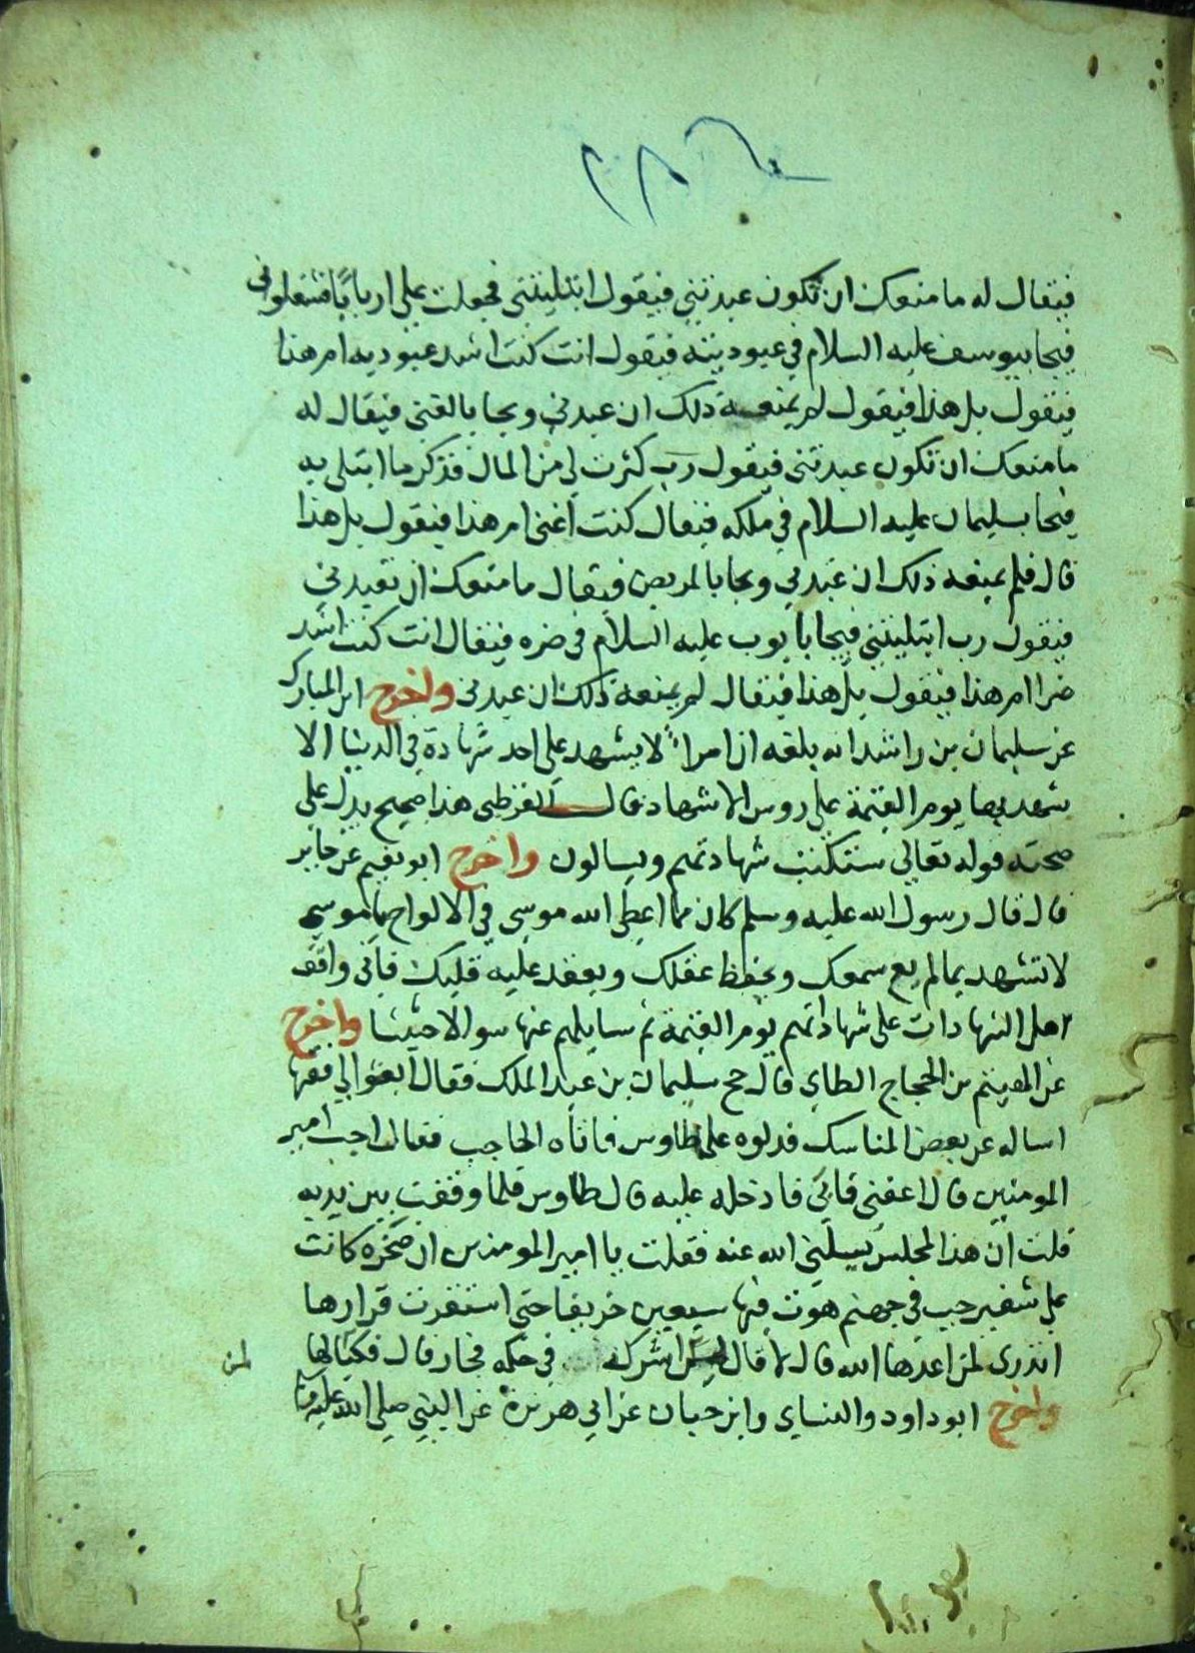 فيقال له ما منعك ان تكون عبدتني فيقول ابتليتني فجعلت علي اربابا فشغلوني
فيجا بيوسف عليه السلام في عبوديته فيقول انت كنت اشد عبوديه ام هذا
فيقول بل هذا فيقول لم يمنعه ذلك ان عبدني ويجا بالغني فيقال له
ما منعك ان تكون عبدتني فيقول رب كثرت لي من المال فذكر ما ابتلي به
فيجا بسليمان عليه السلام في ملكه فيقال كنت اغني ام هذا فيقول بل هذا
قال فلم يمنعه ذلك ان عبدني ويجا بالمريض فيقال ما منعك ان تعبدني
فيقول رب ابتليتني فيجا بايوب عليه السلام في ضره فيقال انت كنت اشد
ضرا ام هذا فيقول بل هذا فيقال لم يمنعه ذلك ان عبدني واخرج ابن المبارك
عن سليمان بن راشد انه بلغه ان امراً لا يشهد علي احد شهادة في الدنيا الا
شهد بها يوم القيمة علي روس الاشهاد قال القرطبي هذا صحيح يدل علي
صحته قوله تعالي ستكتب شهادتهم ويسالون واخرج ابو نعيم عن جابر
قال قال رسول الله عليه وسلم كان مما اعطي الله موسي في الالواح يا موسي
لا تشهد بما لم يع سمعك ويحفظ عقلك ويعقد عليه قلبك فاني واقف
اهل الشهادات علي شهاداتهم يوم القيمة ثم سايلهم عنها سوالا حثيثا واخرج
عن الهيثم بن الحجاج الطاي قال حج سليمان بن عبد الملك فقال ابغوا لي فقيها
اساله عن بعض المناسك فدلوه علي طاوس فاتاه الحاجب فقال اجب امير
المومنين قال اعفني فابي فادخله عليه قال طاوس فلما وقفت بين يديه
قلت ان هذا المجلس يسيلني الله عنه فقلت يا امير المومنين ان صخره كانت
علي شفير جب في جهنم هوت فيها سبعين خريفا حتي استقرت قرارها
اتدري لمن اعدها الله قال لا قال لمن اشرك في حكمه فجار قال فبكا لها
واخرج ابو داود والنساي وابن حبان عن ابي هريرة عن النبي صلي الله عليه
لمن